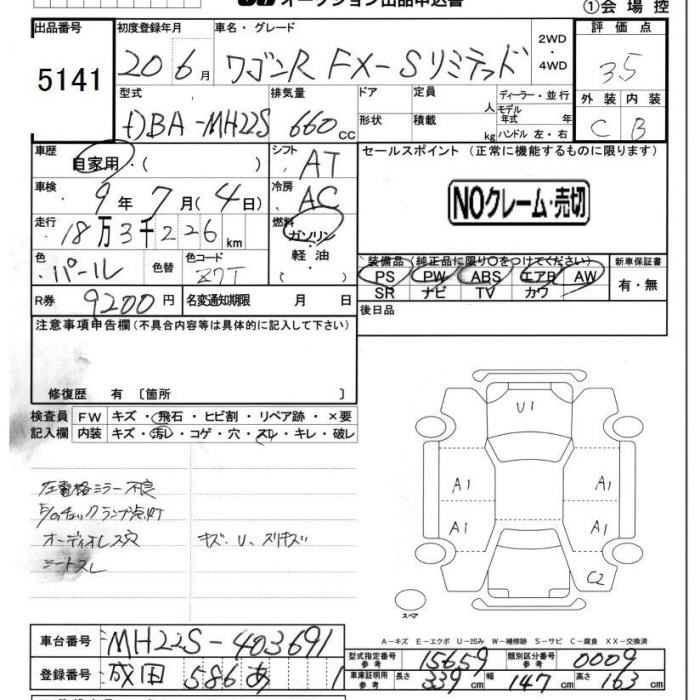 オークション出品申込書
①会場控
出品番号 初度登録年月 車名・グレード 評価点
5141 20 6月 ワゴンR FX-Sリミテッド 2WD・4WD 3.5
型式 排気量 ドア 定員 人 ディーラー・並行 外装 内装
DBA-MH22S 660cc 形状 積載 kg モデル年式 年 ハンドル 左・右 C B
車歴 自家用・( ) シフト AT セールスポイント (正常に機能するものに限ります)
車検 9年7月(4日) 冷房 AC NOクレーム・売切
走行 18万3千226km 燃料 ガソリン・軽油・( )
色 パール 色替 色コード Z7T 装備品 (純正品に限り○をつけてください) 新車保証書
PS PW ABS エアB AW 有・無
SR ナビ TV カワ
R券 9200円 名変通知期限 月 日 後日品
注意事項申告欄 (不具合内容等は具体的に記入して下さい)
修復歴 有 〔箇所 〕
検査員 FW キズ・飛石・ヒビ割・リペア跡・×要
記入欄 内装 キズ・汚レ・コゲ・穴・スレ・キレ・破レ
左電格ミラー不良
E/Gチェックランプ点灯
オーディオレス穴 キズ.U.スリキズ
シートスレ
U1
A1 A1
A1 A1
C2
スペア
A-キズ E-エクボ U-凹み W-補修跡 S-サビ C-腐食 XX-交換済
車台番号 MH22S-403691
型式指定番号 参考 15659 類別区分番号 参考 0009
登録番号 成田 586 あ 1
車庫証明用 参考 長さ 339cm 幅 147cm 高さ 163cm